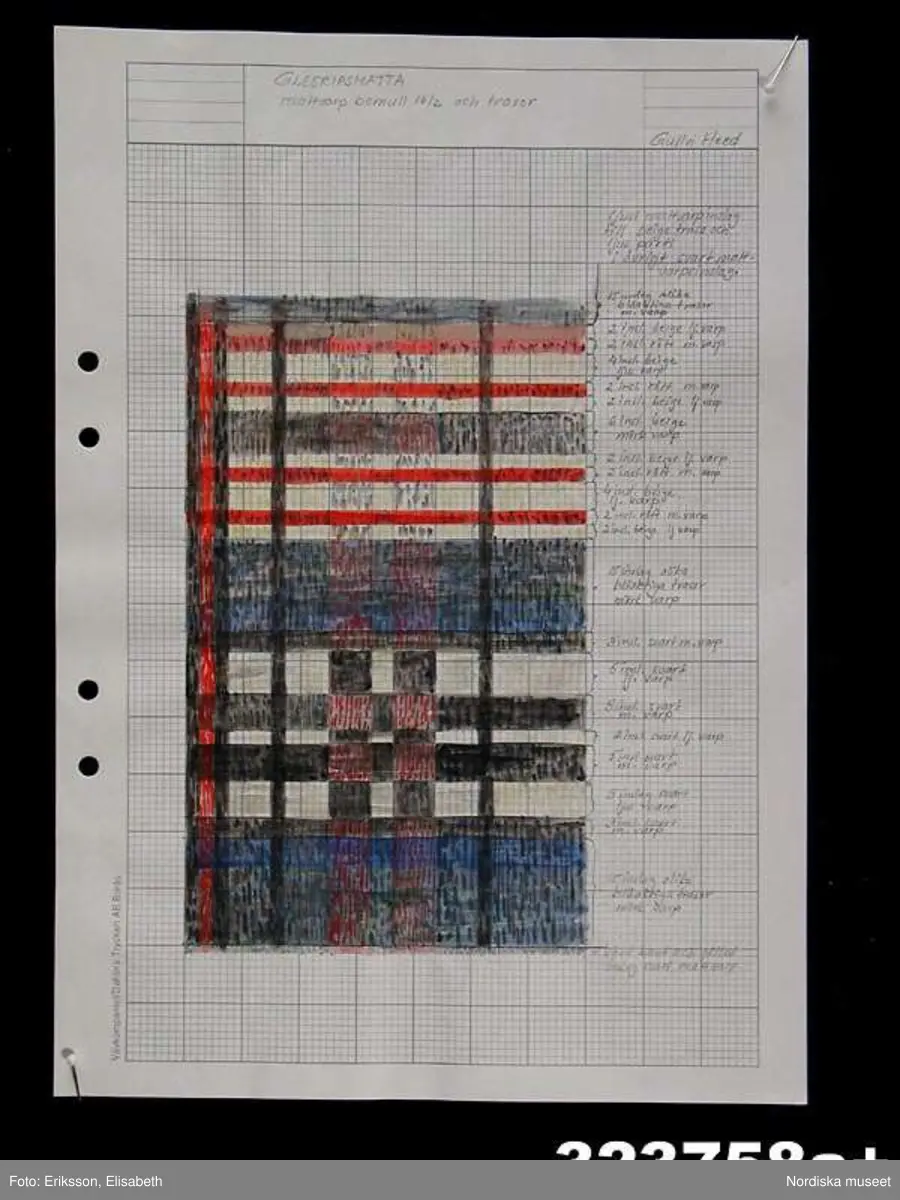 GLESRIPSMATTA
mattvarp bomull 16/2 och trasor
Gulli Heed
ljust mattvarpinslag
till beige trasa och
ljus parti
i övrigt svart matt-
varpsinslag.
15 inslag olika
blåaktiga trasor
m. varp
2 incl. beige lj varp
2 incl. rött m. varp
4 incl. beige
ljus varp
2 incl. rött m. varp
2 incl. beige lj varp
6 incl. beige
mörk varp
2 incl. beige lj. varp
2 incl. rött m. varp
4 incl. beige
lj. varp
2 incl. rött m. varp
2 incl. beige lj varp
15 inslag olika
blåaktiga trasor
mörk varp
3 incl. svart m. varp
5 incl. svart
lj. varp
5 incl. svart
m. varp
2 incl. svart lj. varp
5 incl. svart
m. varp
5 inslag svart
ljus varp
3 incl. svart
m. varp
15 inslag olika
blåaktiga trasor
mörk varp
svart mattvarp
Vävkompaniet/Daltoris Tryckeri AB Borås
323758a+
Foto: Eriksson, Elisabeth
Nordiska museet